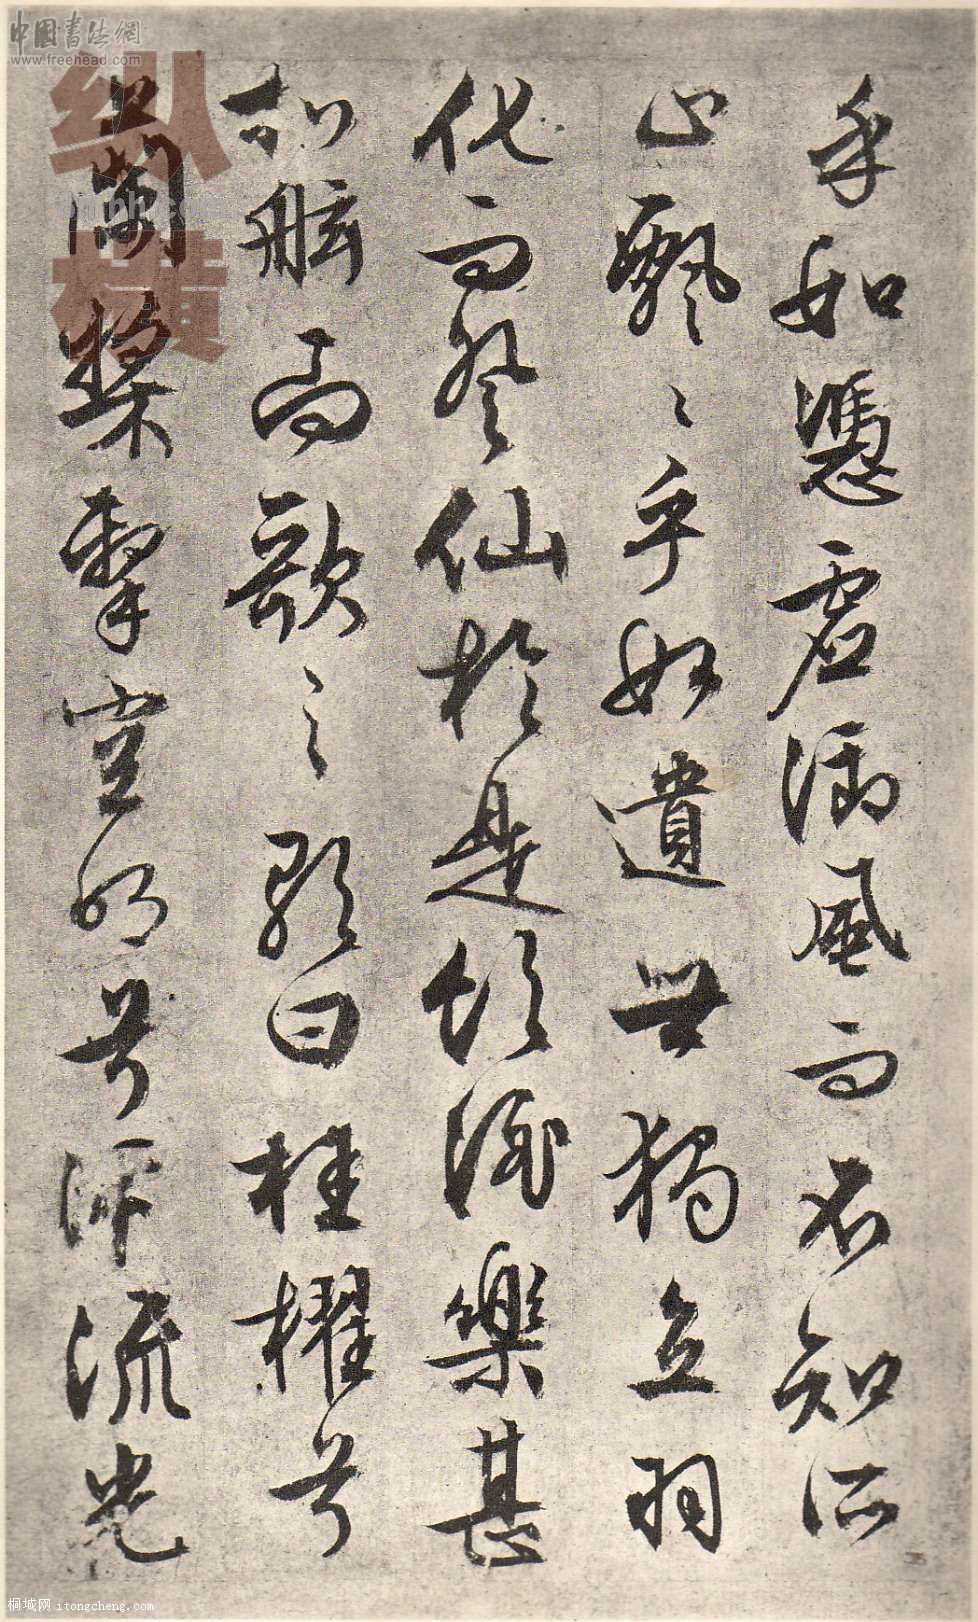 中國書法網
www.freehead.com
纵横
乎如憑虛御風而不知所
止飄〻乎如遺世獨立羽
化而登仙於是飲酒樂甚
扣舷而歌之歌曰桂櫂兮
蘭槳擊空明兮泝流光
桐城网 itongcheng.com